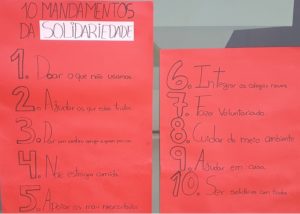 10 MANDAMENTOS
DA SOLIDARIEDADE
1. Doar o que não usamos
2. Ajudar os que estão tristes
3. Dar um
4. Não estragar comida
5. Apoiar os mais necessitados
6. Integrar os colegas novos
7. Fazer Voluntariado
8. Cuidar do meio ambiente
9. Ajudar em casa
10. Ser solidário com todos